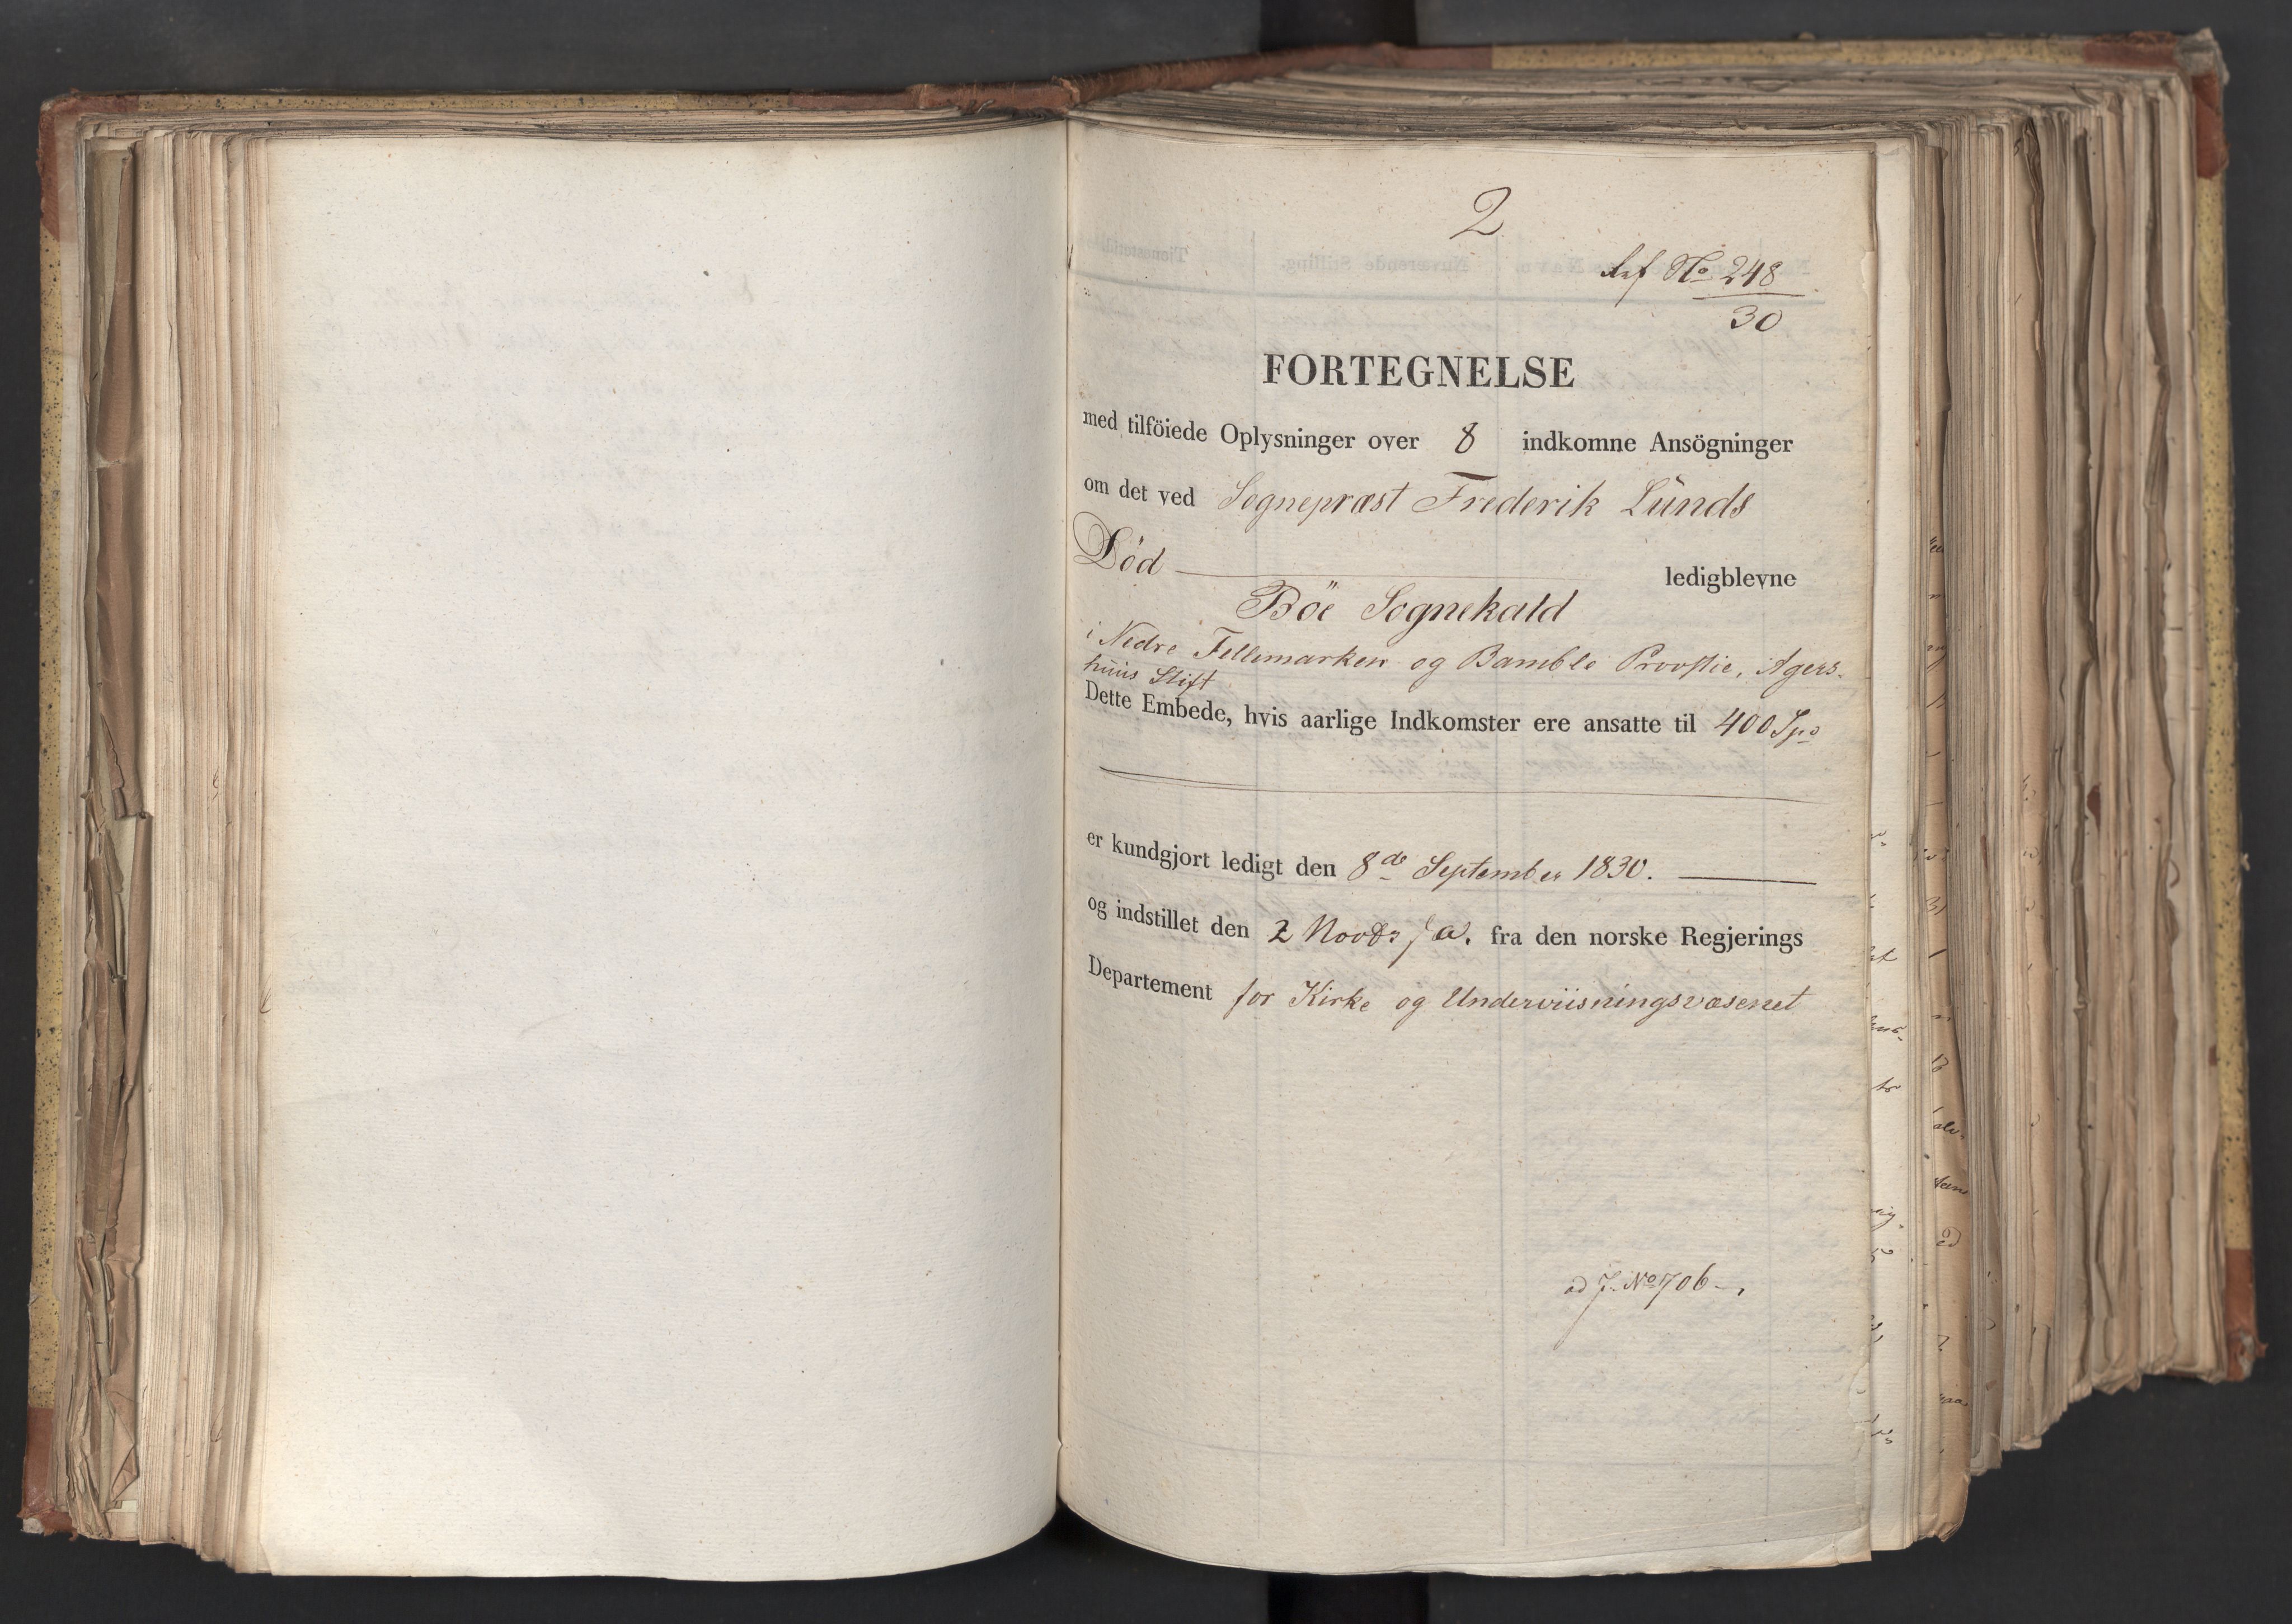 2
Ref No 248
30
FORTEGNELSE
med tilföiede Oplysninger over 8 indkomne Ansögninger
om det ved Sognepræst Frederik Lunds
Död ledigblevne
Böe Sognekald
i Nedre Tellemarken og Bamble Provstie, Agers-
huus Stift
Dette Embede, hvis aarlige Indkomster ere ansatte til 400 Spd
er kundgjort ledigt den 8de September 1830.
og indstillet den 2 Novbr f. a. fra den norske Regjerings
Departement for Kirke og Underviisningsvæsenet
ad J. No 706